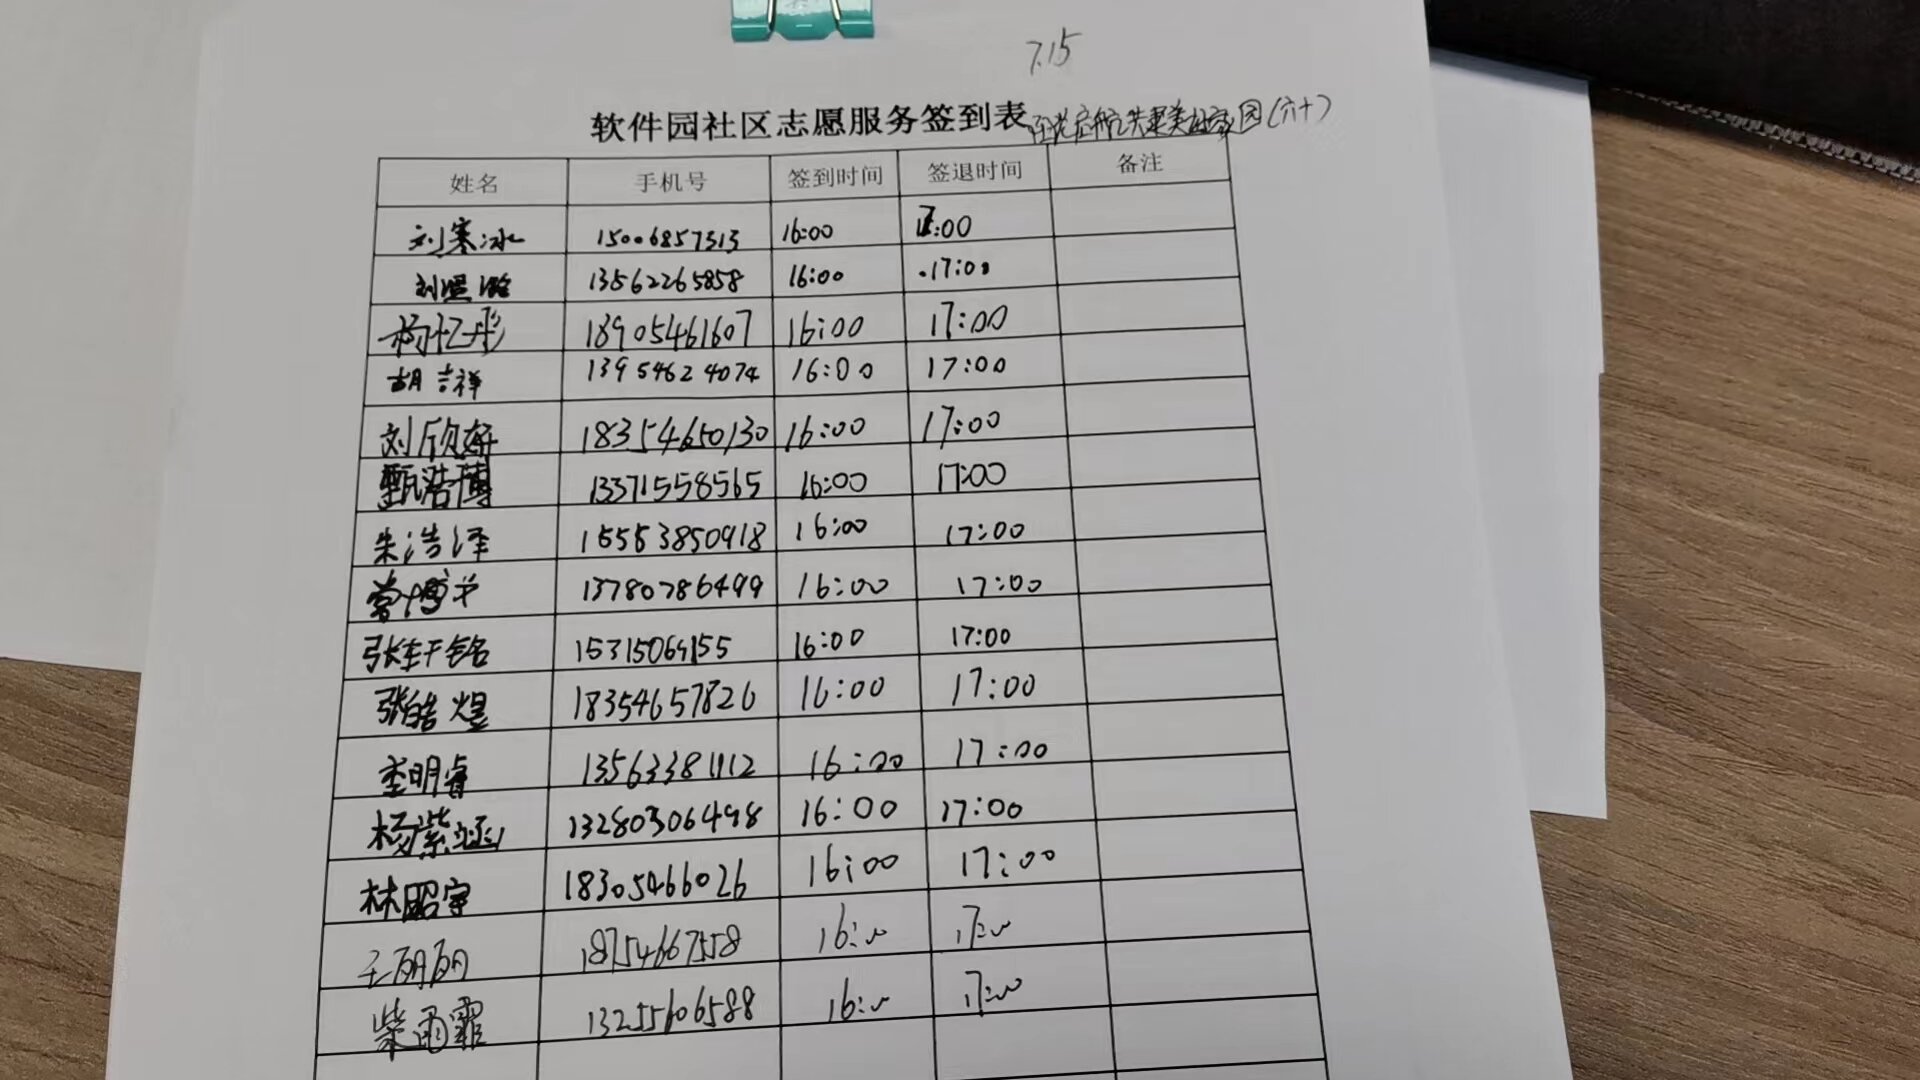 7.15
软件园社区志愿服务签到表 共建美好家园(六十)
姓名 手机号 签到时间 签退时间 备注
刘寒冰 15006857313 16:00 17:00
刘照璐 13562265858 16:00 17:00
杨忆彤 18905461607 16:00 17:00
胡吉祥 13954624074 16:00 17:00
刘欣妍 18354650130 16:00 17:00
甄浩博 13371558565 16:00 17:00
朱浩泽 15553850918 16:00 17:00
13780786499 16:00 17:00
张轩铭 15315069155 16:00 17:00
张皓煜 18354657826 16:00 17:00
李明睿 13563381112 16:00 17:00
杨紫涵 13280306498 16:00 17:00
林昭宇 18305466026 16:00 17:00
王丽丽 18754667558 16:00 17:00
柴雨霏 13255606588 16:00 17:00